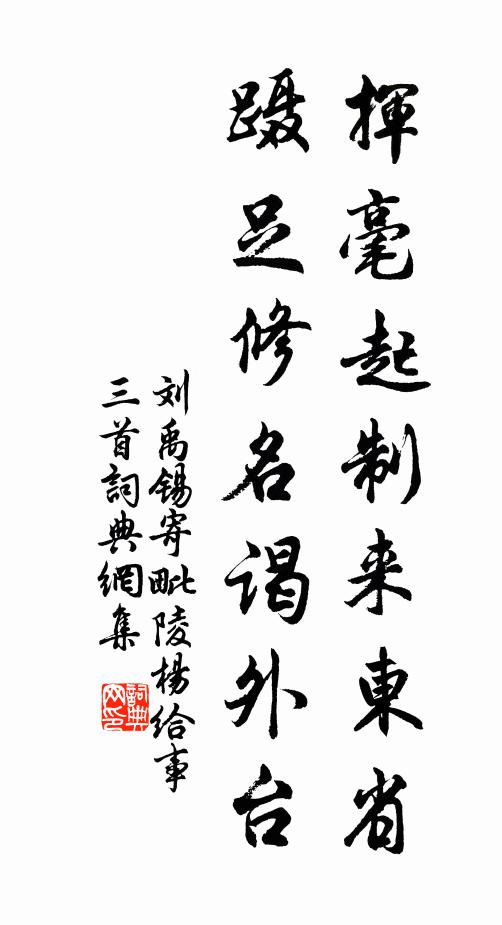 揮毫起制来東省
蹑足修名谒外台
刘禹锡寄毗陵楊给事
三首詞典網集
詞典
网印